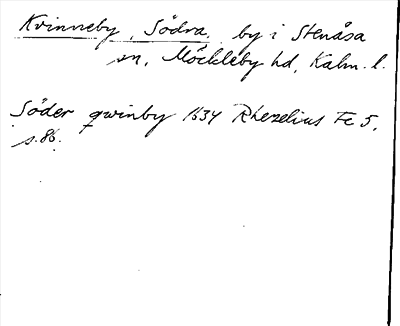 Kvinneby, Södra, by i Stenåsa
sn, Möckleby hd, Kalm. l.
Söder qwinby 1634 Rhezelius Fc 5,
s. 86.